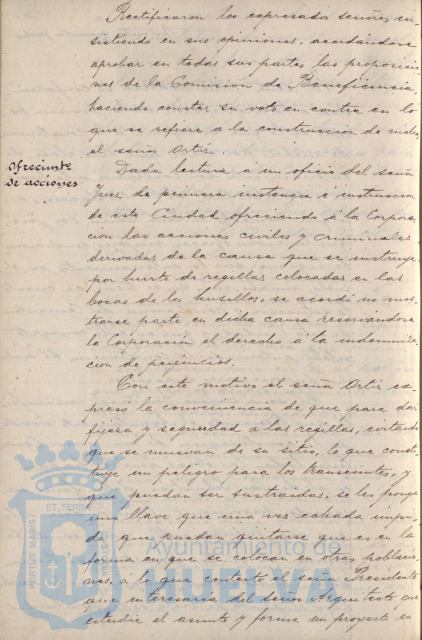 Rectificaron los expresados señores in-
sistiendo en sus opiniones, acordándose
aprobar en todas sus partes las proposicio-
nes de la Comision de Beneficencia,
haciendo constar su voto en contra en lo
que se refiere a la construccion de
el señor Ortiz.
Ofrecimto
de acciones
Dada lectura á un oficio del señor
Juez de primera instancia é instruccion
de esta Ciudad ofreciendo á la Corpora-
cion las acciones civiles y criminales
derivadas de la causa que se instruye
por hurto de regillas colocadas en las
bocas de los husillos, se acordó no mos-
trarse parte en dicha causa reservandose
la Corporacion el derecho á la indemniza-
cion de perjuicios.
Con este motivo el señor Ortiz ex-
presó la conveniencia de que para dar
fijeza y seguridad á las regillas, evitando
que se muevan de su sitio, lo que consti-
tuye un peligro para los transeuntes, y
que puedan ser sustraidas, se les ponga
una llave que una vez echada impi-
da que puedan quitarse que es en la
forma en que se colocan en otras poblacio-
nes, a lo que contestó el señor Presidente
que interesaria del Señor Arquitecto que
estudie el asunto y forme un proyecto en
PORTUS MARIS
ET TERRÆ
CUSTODIA
Ayuntamiento de
HUELVA